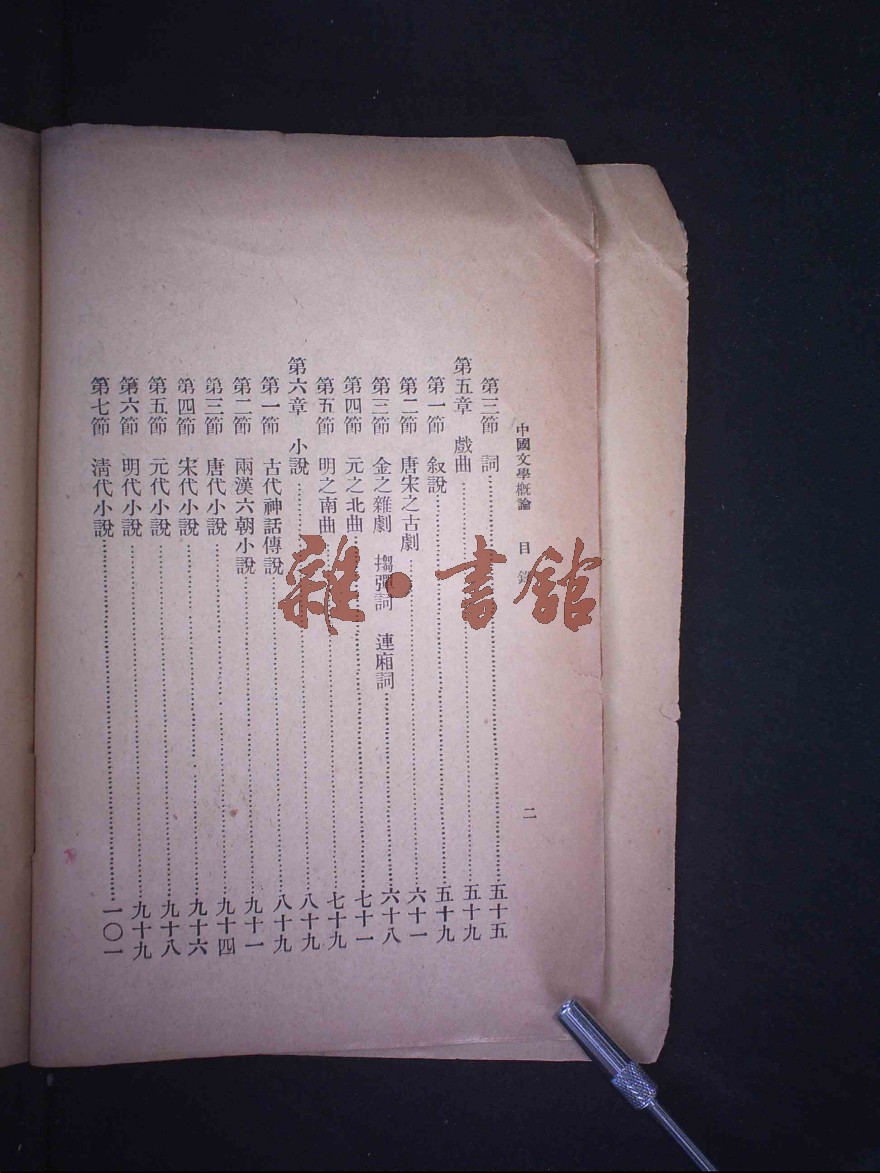 中國文學概論 目錄 二
第三節 詞……五十五
第五章 戲曲……五十九
第一節 叙說……五十九
第二節 唐宋之古劇……六十一
第三節 金之雜劇 搊彈詞 連廂詞……六十八
第四節 元之北曲……七十一
第五節 明之南曲……七十九
第六章 小說……八十九
第一節 古代神話傳說……八十九
第二節 兩漢六朝小說……九十一
第三節 唐代小說……九十四
第四節 宋代小說……九十六
第五節 元代小說……九十八
第六節 明代小說……九十九
第七節 清代小說……一〇一
雜·書館